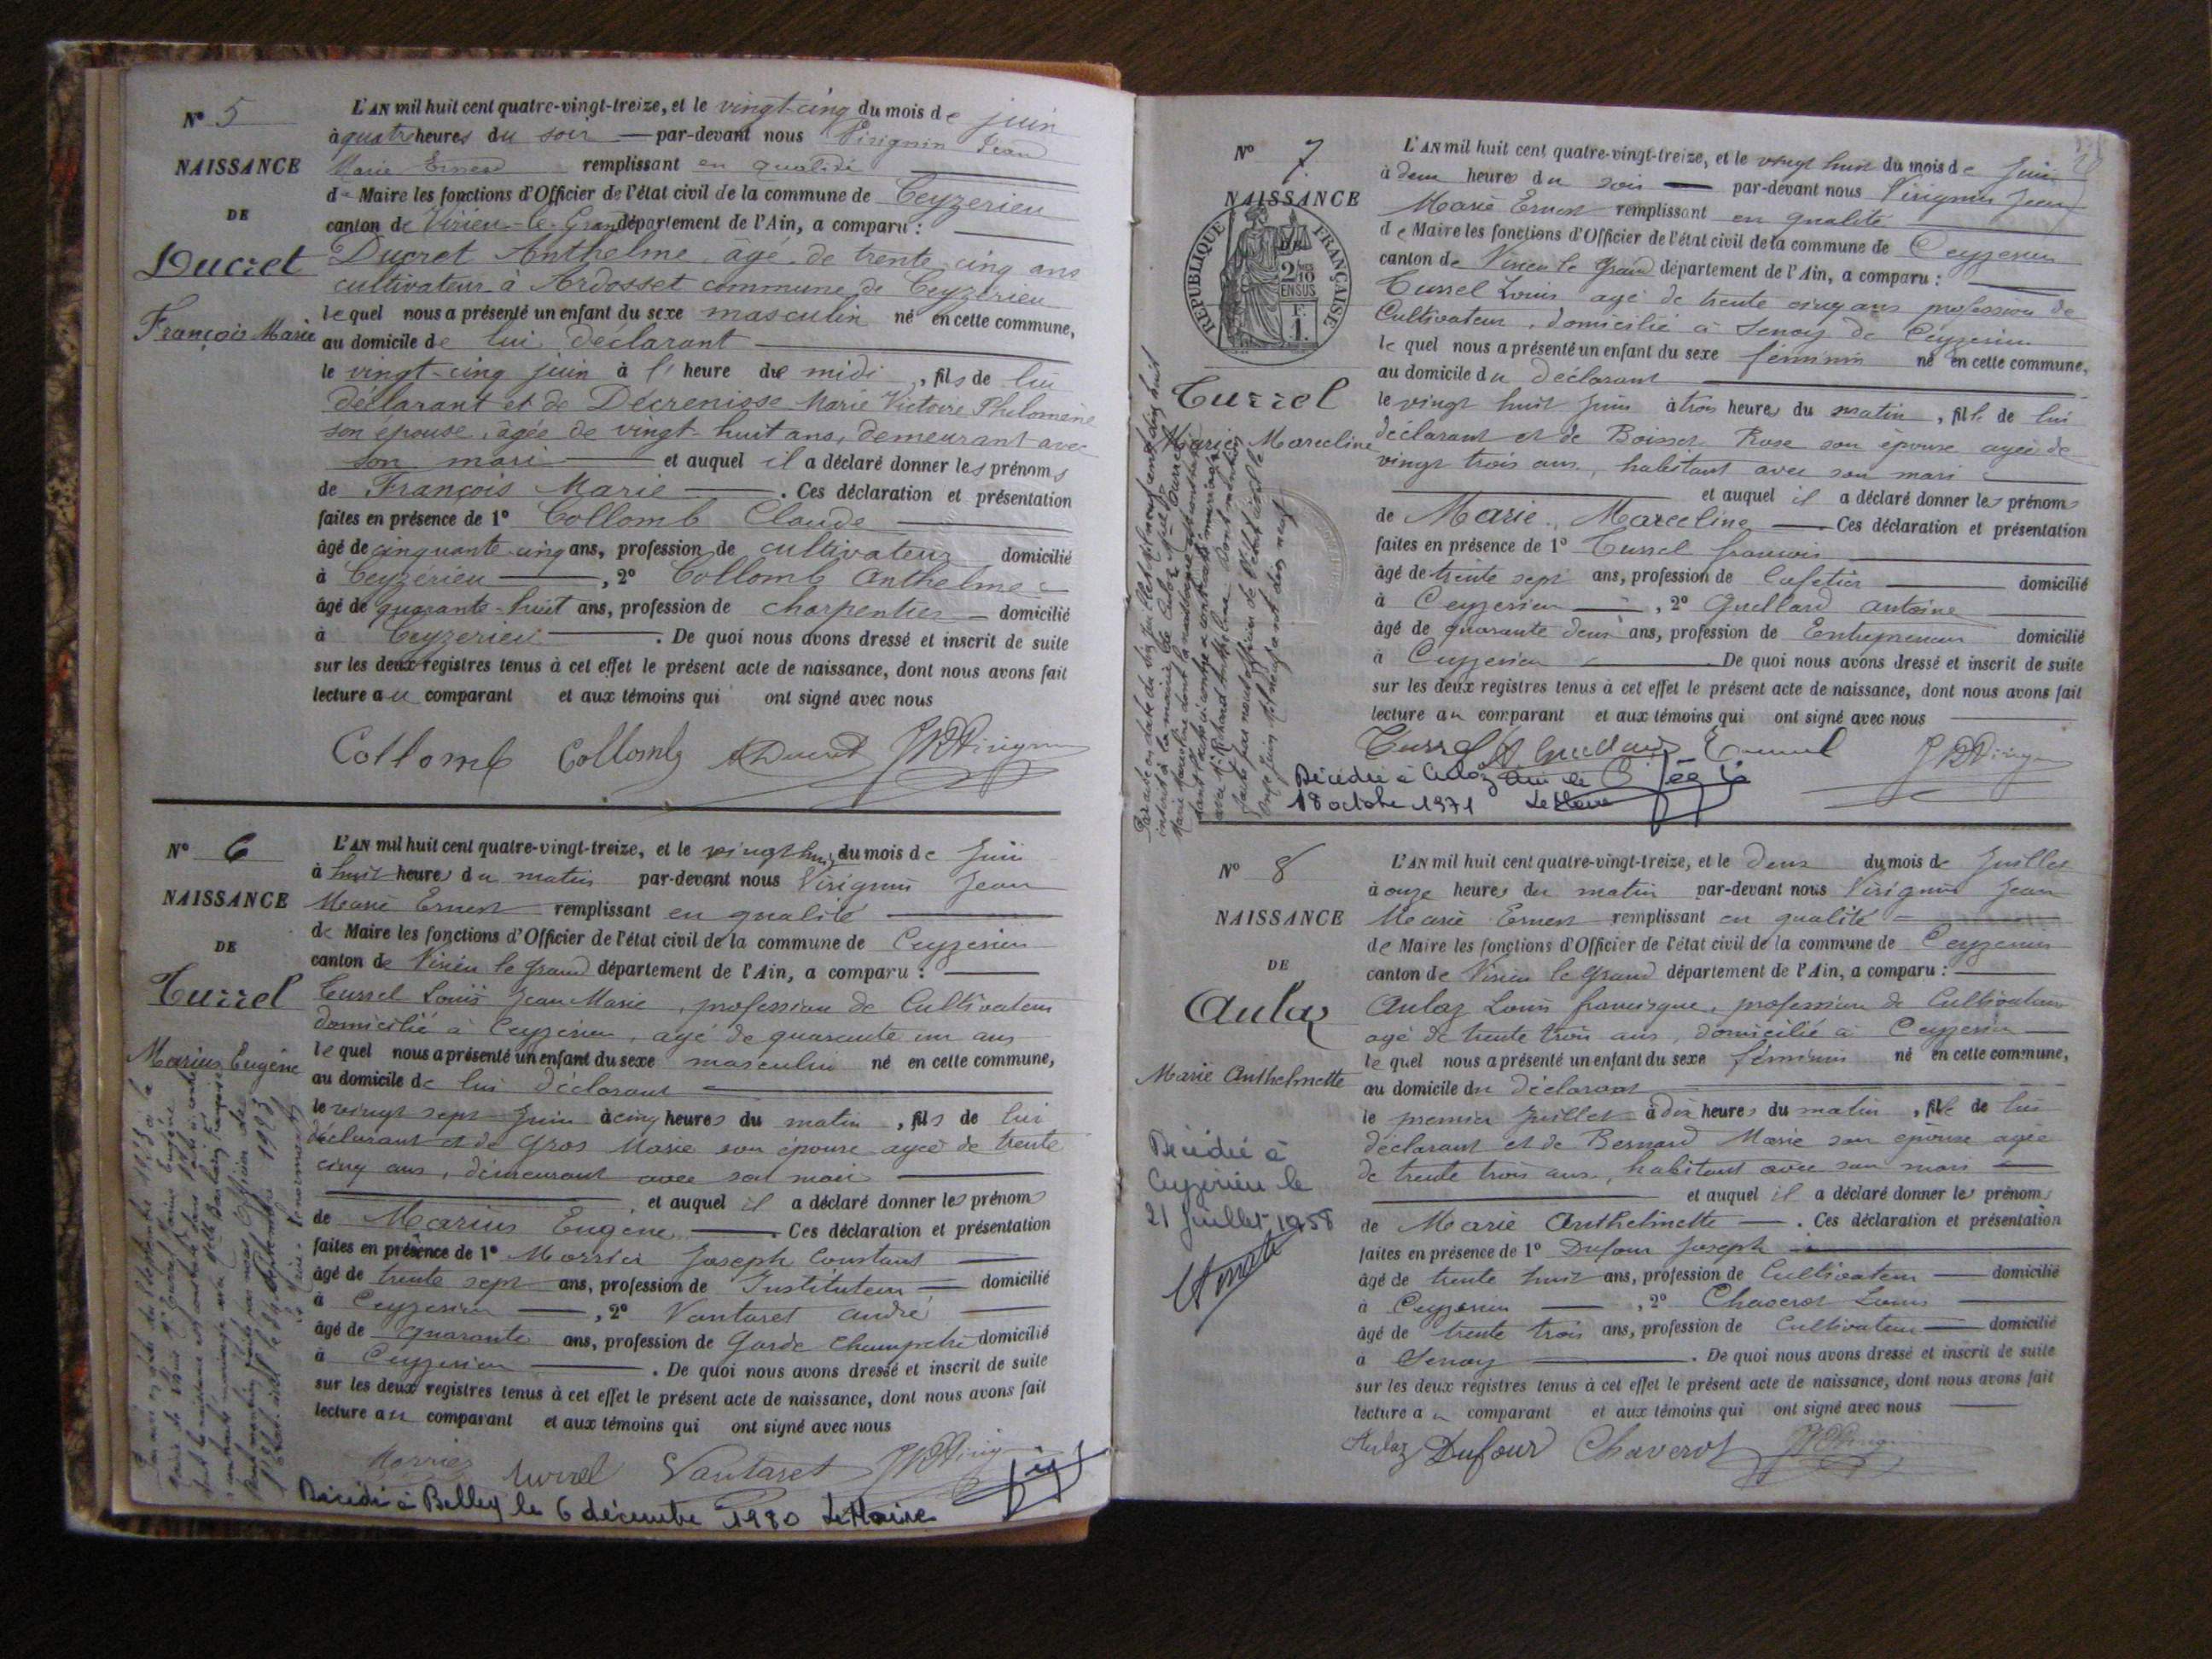 N° 5
NAISSANCE
DE
Ducret
François Marie
L'AN mil huit cent quatre-vingt-treize, et le vingt-cinq du mois de juin
à quatre heures du soir — par-devant nous Virignin Jean
Marie Ernest remplissant en qualité
de Maire les fonctions d'Officier de l'état civil de la commune de Ceyzerieu
canton de Virieu-le-Grand département de l'Ain, a comparu :
Ducret Anthelme, âgé de trente cinq ans
cultivateur à Ardosset commune de Ceyzérieu
lequel nous a présenté un enfant du sexe masculin né en cette commune,
au domicile de lui déclarant
le vingt-cinq juin à l' heure de midi, fils de lui
déclarant et de Décrenisse Marie Victoire Philomène
son épouse, âgée de vingt-huit ans, demeurant avec
son mari — et auquel il a déclaré donner les prénoms
de François Marie — . Ces déclaration et présentation
faites en présence de 1° Collomb Claude
âgé de cinquante-cinq ans, profession de cultivateur domicilié
à Ceyzérieu — , 2° Collomb Anthelme
âgé de quarante-huit ans, profession de charpentier — domicilié
à Ceyzerieu — . De quoi nous avons dressé et inscrit de suite
sur les deux registres tenus à cet effet le présent acte de naissance, dont nous avons fait
lecture au comparant et aux témoins qui ont signé avec nous
Collomb Collomb ADucret
N° 6
NAISSANCE
DE
Turrel
Marius Eugène
L'AN mil huit cent quatre-vingt-treize, et le vingt huit du mois de Juin
à huit heures du matin par-devant nous Virignin Jean
Marie Ernest remplissant en qualité
de Maire les fonctions d'Officier de l'état civil de la commune de Ceyzerieu
canton de Virieu le Grand département de l'Ain, a comparu :
Turrel Louis Jean Marie, profession de Cultivateur
domicilié à Ceyzerieu, agé de quarante un ans
lequel nous a présenté un enfant du sexe masculin né en cette commune,
au domicile de lui déclarant
le vingt sept Juin à cinq heures du matin, fils de lui
déclarant et de Gros Marie son épouse agée de trente
cinq ans, demeurant avec son mari
et auquel il a déclaré donner les prénoms
de Marius Eugène — Ces déclaration et présentation
faites en présence de 1° Morrier Joseph Constant
âgé de trente sept ans, profession de Instituteur — domicilié
à Ceyzerieu — , 2° Vantaret André
âgé de quarante ans, profession de Garde Champetre domicilié
à Ceyzerieu — . De quoi nous avons dressé et inscrit de suite
sur les deux registres tenus à cet effet le présent acte de naissance, dont nous avons fait
lecture au comparant et aux témoins qui ont signé avec nous
Morrier Turrel Vantaret
Décédé à Belley le 6 décembre 1980 Le Maire
N° 7
NAISSANCE
RÉPUBLIQUE FRANÇAISE
Turrel
Marie Marceline
L'AN mil huit cent quatre-vingt-treize, et le vingt huit du mois de Juin
à deux heures du soir — par-devant nous Virignin Jean
Marie Ernest remplissant en qualité
de Maire les fonctions d'Officier de l'état civil de la commune de Ceyzerieu
canton de Virieu le Grand département de l'Ain, a comparu :
Turrel Louis agé de trente cinq ans profession de
Cultivateur, domicilié à Senoy de Ceyzerieu
lequel nous a présenté un enfant du sexe féminin né en cette commune,
au domicile du déclarant
le vingt huit Juin à trois heures du matin, fille de lui
déclarant et de Boisset Rose son épouse agée de
vingt trois ans, habitant avec son mari
et auquel il a déclaré donner les prénoms
de Marie Marceline — Ces déclaration et présentation
faites en présence de 1° Turrel françois
âgé de trente sept ans, profession de Cafetier domicilié
à Ceyzerieu — , 2° Guillard Antoine
âgé de quarante deux ans, profession de Entrepreneur domicilié
à Ceyzerieu — De quoi nous avons dressé et inscrit de suite
sur les deux registres tenus à cet effet le présent acte de naissance, dont nous avons fait
lecture au comparant et aux témoins qui ont signé avec nous
Décédée à Culoz Ain le
18 octobre 1971 Le Maire
N° 8
NAISSANCE
DE
Aulaz
Marie Anthelmette
Décédée à
Ceyzérieu le
21 Juillet 1958
L'AN mil huit cent quatre-vingt-treize, et le Deux du mois de Juillet
à onze heures du matin par-devant nous Virignin Jean
Marie Ernest remplissant en qualité
de Maire les fonctions d'Officier de l'état civil de la commune de Ceyzerieu
canton de Virieu le Grand département de l'Ain, a comparu :
Aulaz Louis françisque, profession de Cultivateur
agé de trente trois ans, domicilié à Ceyzerieu
lequel nous a présenté un enfant du sexe féminin né en cette commune,
au domicile du déclarant
le premier Juillet à dix heures du matin, fille de lui
déclarant et de Bernard Marie son épouse agée
de trente trois ans, habitant avec son mari
et auquel il a déclaré donner les prénoms
de Marie Anthelmette — . Ces déclaration et présentation
faites en présence de 1° Dufour Joseph
âgé de trente huit ans, profession de Cultivateur — domicilié
à Ceyzerieu — , 2° Chaverot Louis
âgé de trente trois ans, profession de Cultivateur — domicilié
à Senoy — . De quoi nous avons dressé et inscrit de suite
sur les deux registres tenus à cet effet le présent acte de naissance, dont nous avons fait
lecture au comparant et aux témoins qui ont signé avec nous
Aulaz Dufour Chaverot